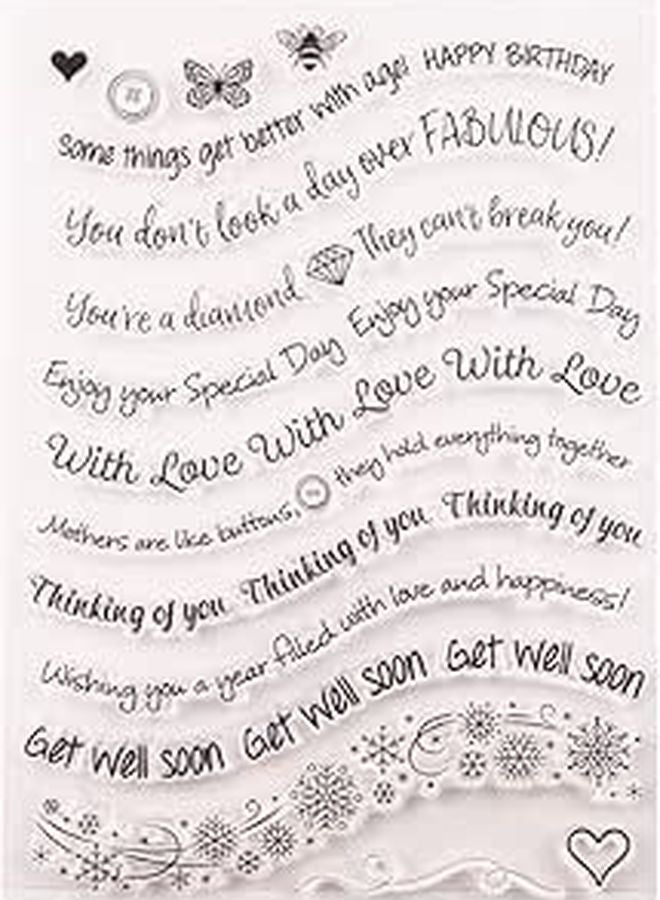 Some things get better with age! HAPPY BIRTHDAY
You don't look a day over FABULOUS!
You're a diamond They can't break you!
Enjoy your Special Day Enjoy your Special Day
With Love With Love With Love
Mothers are like buttons, they hold everything together
Thinking of you Thinking of you Thinking of you
Wishing you a year filled with love and happiness!
Get Well soon Get Well soon Get Well soon